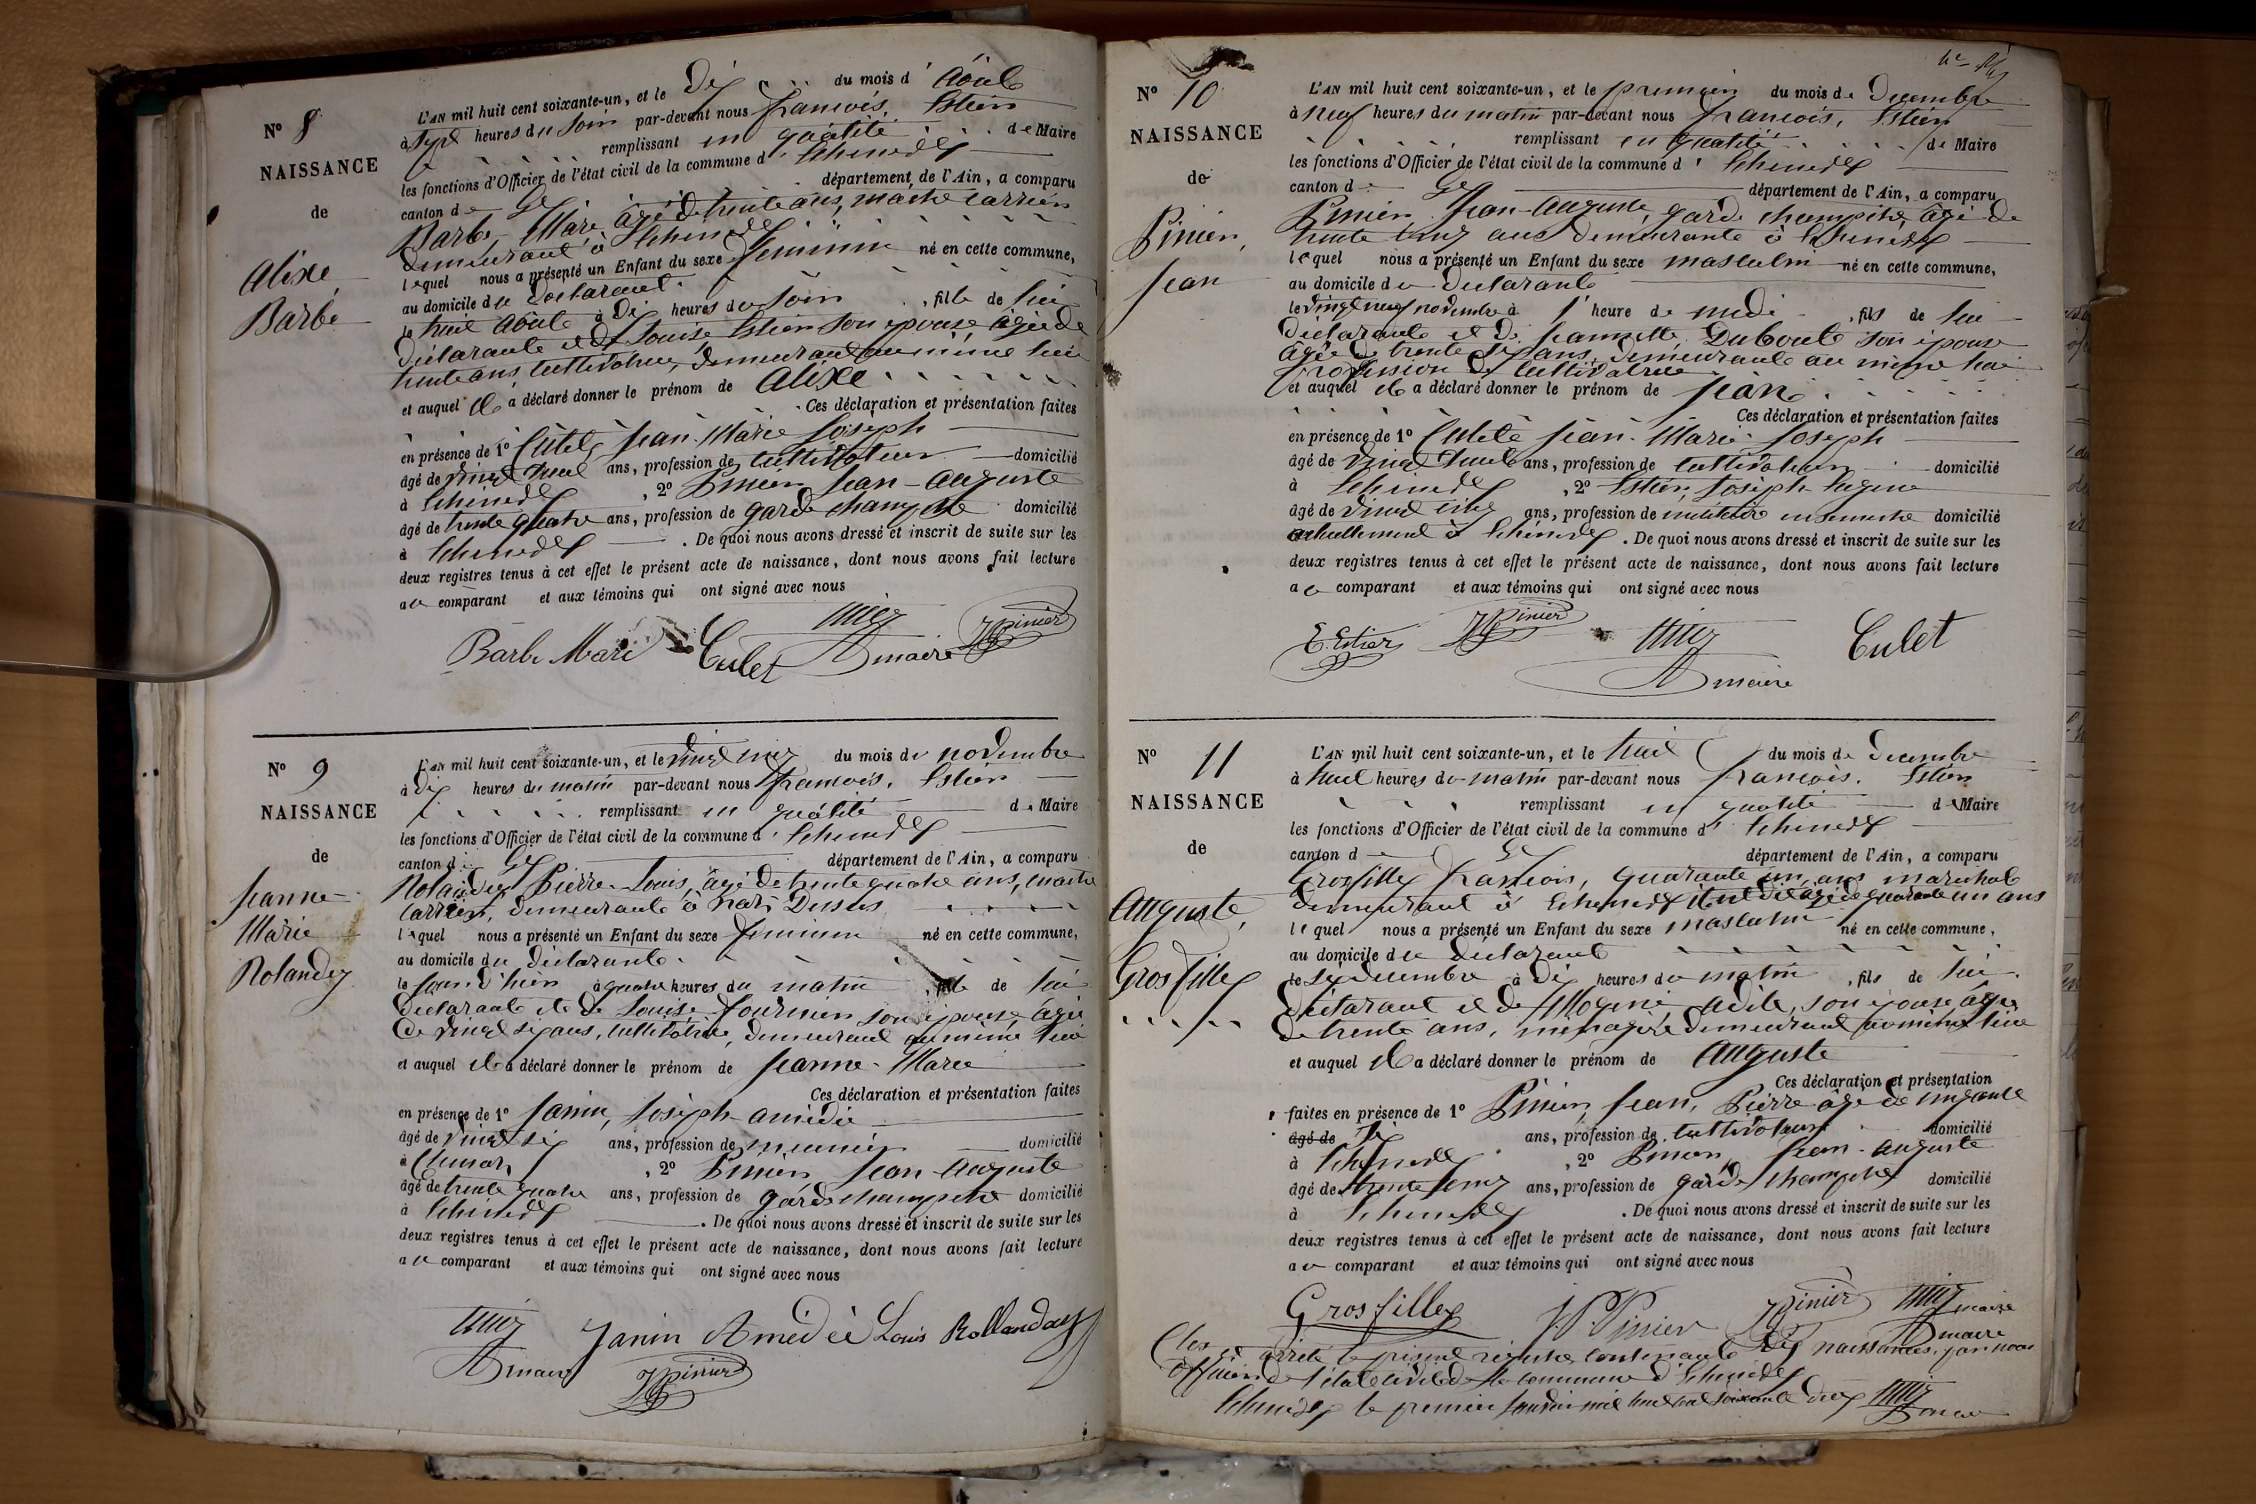 N° 8
NAISSANCE
de
Alixe
Barbe
L'AN mil huit cent soixante-un, et le Dix du mois d' Aôut
à Sept heures du Soir par-devant nous françois, Estier
remplissant en qualité de Maire
les fonctions d'Officier de l'état civil de la commune d' Echenevex
canton de Gex département de l'Ain, a comparu
Barbe, Marie âgé de trente ans, maître carrier
demeurant à Echenevex
lequel nous a présenté un Enfant du sexe féminin né en cette commune,
au domicile du Déclarant
le huit Aôut à Dix heures du Soir, fille de lui
Déclarant et de Louise Estier son épouse âgée de
trente ans, cultivatrice, demeurant au même lieu
et auquel il a déclaré donner le prénom de Alixe
Ces déclaration et présentation faites
en présence de 1° Culet, Jean-Marie Joseph
âgé de vingt huit ans, profession de cultivateur domicilié
à Echenevex, 2° Pinier Jean-Auguste
âgé de trente quatre ans, profession de garde champêtre domicilié
à Echenevex. De quoi nous avons dressé et inscrit de suite sur les
deux registres tenus à cet effet le présent acte de naissance, dont nous avons fait lecture
au comparant et aux témoins qui ont signé avec nous
Barbe Mari Culet maire Pinier
N° 9
NAISSANCE
de
Jeanne
Marie
Rolandez
L'AN mil huit cent soixante-un, et le vingt du mois de novembre
à dix heures du matin par-devant nous françois, Estier
remplissant en qualité de Maire
les fonctions d'Officier de l'état civil de la commune d' Echenevex
canton de Gex département de l'Ain, a comparu
Rolandez Pierre-Louis, âgé de trente quatre ans, maître
carrier, demeurant à Naz Dessus
lequel nous a présenté un Enfant du sexe féminin né en cette commune,
au domicile du déclarant
le jour d'hier à quatre heures du matin, fille de lui
Déclarant et de Louise Fournier son épouse âgée
de vingt six ans, cultivatrice, demeurant au même lieu
et auquel il a déclaré donner le prénom de Jeanne-Marie
Ces déclaration et présentation faites
en présence de 1° Janin, Joseph amédée
âgé de vingt six ans, profession de meunier domicilié
à, 2° Pinier Jean-Auguste
âgé de trente quatre ans, profession de garde champêtre domicilié
à Echenevex. De quoi nous avons dressé et inscrit de suite sur les
deux registres tenus à cet effet le présent acte de naissance, dont nous avons fait lecture
au comparant et aux témoins qui ont signé avec nous
Janin Amédée Louis Rollandez
maire Pinier
N° 10
NAISSANCE
de
Pinier,
Jean
L'AN mil huit cent soixante-un, et le premier du mois de Decembre
à neuf heures du matin par-devant nous françois, Estier
remplissant en qualité de Maire
les fonctions d'Officier de l'état civil de la commune d' Echenevex
canton de Gex département de l'Ain, a comparu
Pinier Jean-Auguste, garde champêtre âgé de
trente cinq ans demeurant à Echenevex
lequel nous a présenté un Enfant du sexe masculin né en cette commune,
au domicile du Déclarant
le vingt neuf novembre à 1 heure de midi, fils de lui
Déclarant et de Jeannette Duboule son épouse
âgée de trente ans, demeurant au même lieu
profession de cultivatrice
et auquel il a déclaré donner le prénom de Jean
Ces déclaration et présentation faites
en présence de 1° Culet Jean-Marie Joseph
âgé de vingt huit ans, profession de cultivateur domicilié
à Echenevex, 2° Estier, Joseph Eugène
âgé de vingt cinq ans, profession de militaire en semestre domicilié
actuellement à Echenevex. De quoi nous avons dressé et inscrit de suite sur les
deux registres tenus à cet effet le présent acte de naissance, dont nous avons fait lecture
au comparant et aux témoins qui ont signé avec nous
E. Estier Pinier Culet
maire
N° 11
NAISSANCE
de
Auguste,
Grosfilley
L'AN mil huit cent soixante-un, et le huit du mois de Decembre
à huit heures du matin par-devant nous françois, Estier
remplissant en qualité de Maire
les fonctions d'Officier de l'état civil de la commune d' Echenevex
canton de Gex département de l'Ain, a comparu
Grosfilley François, quarante un ans maréchal
demeurant à Echenevex âgé de quarante un ans
lequel nous a présenté un Enfant du sexe masculin né en cette commune,
au domicile du déclarant
le six decembre à dix heures du matin, fils de lui
Déclarant et de adile, son épouse âgée
de trente ans, ménagère demeurant au même lieu
et auquel il a déclaré donner le prénom de Auguste
Ces déclaration et présentation
faites en présence de 1° Pinier, Jean, Pierre âgé de cinquante
âgé de six ans, profession de cultivateur domicilié
à Echenevex, 2° Pinier, Jean-Auguste
âgé de trente cinq ans, profession de garde champêtre domicilié
à Echenevex. De quoi nous avons dressé et inscrit de suite sur les
deux registres tenus à cet effet le présent acte de naissance, dont nous avons fait lecture
au comparant et aux témoins qui ont signé avec nous
Grosfilley J.P. Pinier Pinier maire
Clos et arrêté le présent registre contenant naissances, par nous
Officier de l'état civil de la commune d'Echenevex
Echenevex le premier Janvier mil huit cent soixante deux